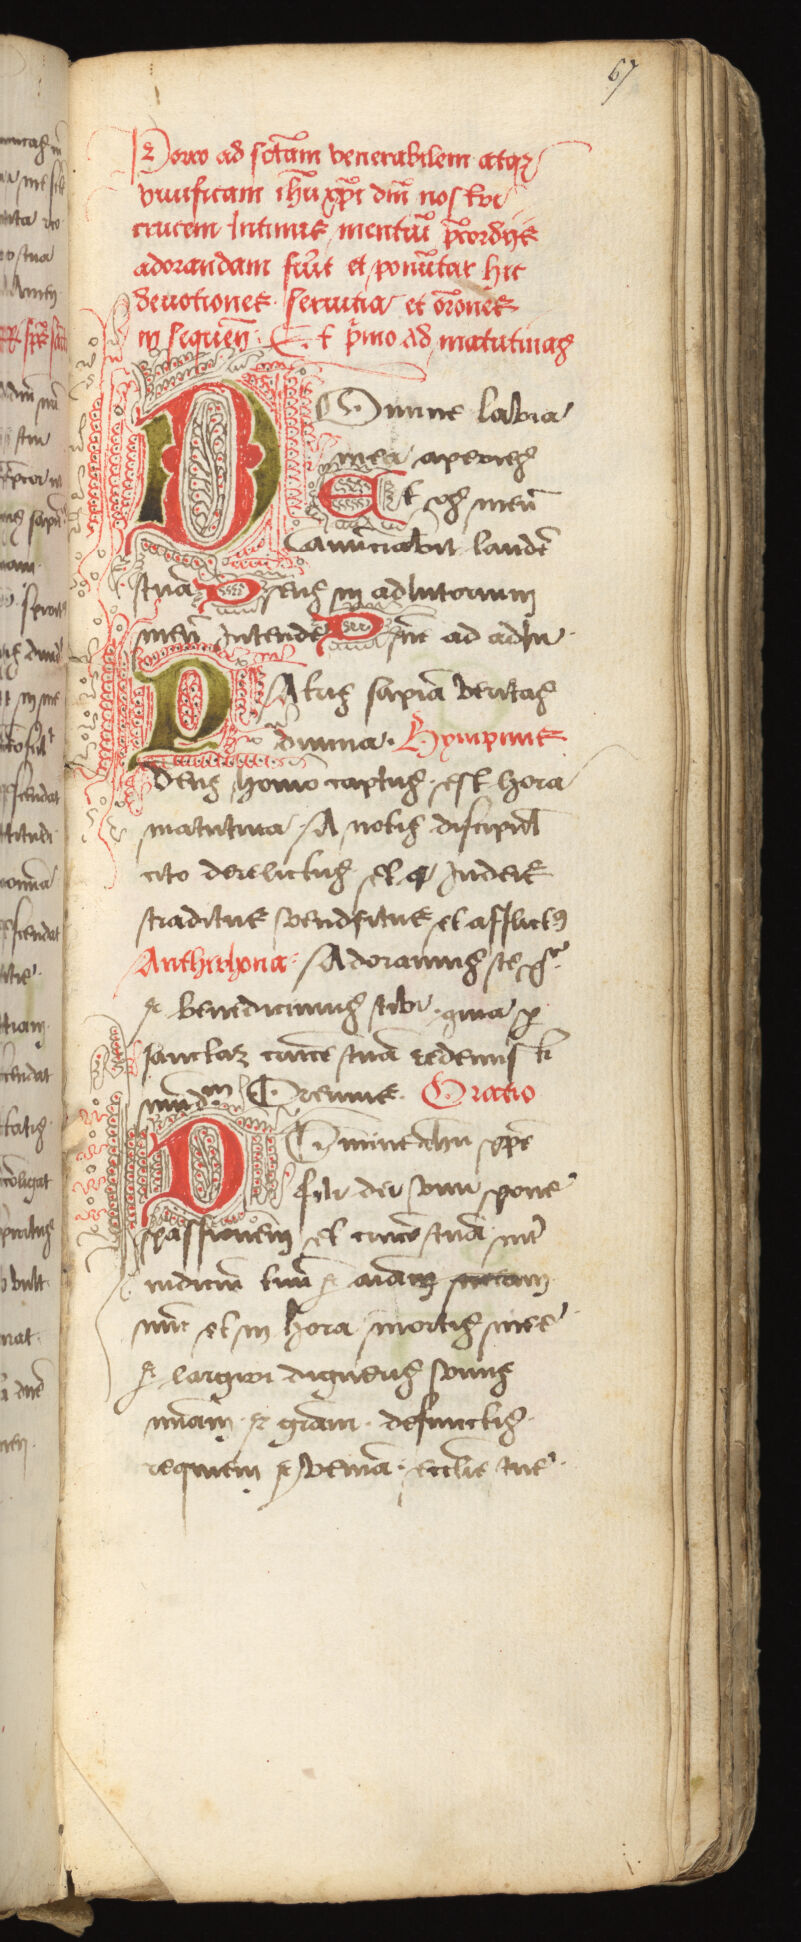 67
Porro ad sctām venerabilem atqȝ
viuificam ihū xp̄i dn̄i nostri
crucem Intimis mentiū p̄cordijs
adorandam fiūt et ponūtur hic
deuotiones seruitia et or̄ones
in sequen̄. Et p̄imo ad matutinas
DOmine labia
mea aperies
Et os meū
annūciabit laudē
tuā Deus in adiutorium
meū Intende Dn̄e ad adiu
PAtris sapiā veritas
diuina. Hympnus
deus homo captus est hora
matutina A notis discipul̄
cito derelictus et a Iudeis
traditus venditus et afflictꝰ
Anthiphona Adoramus te
et benedicimus tibi quia p̱
sanctaȝ crucē tuā redemisti
mundum Oremus. Oratio
DOmine ihū xp̄e
fili dei viui pone
passionem et crucē tuā int̄
iudiciū tuū et aīam meam
nūc et in hora mortis mee
et largiri digneris viuis
mīam et grām. defunctis
requiem et veniā. eccl̄ie tue